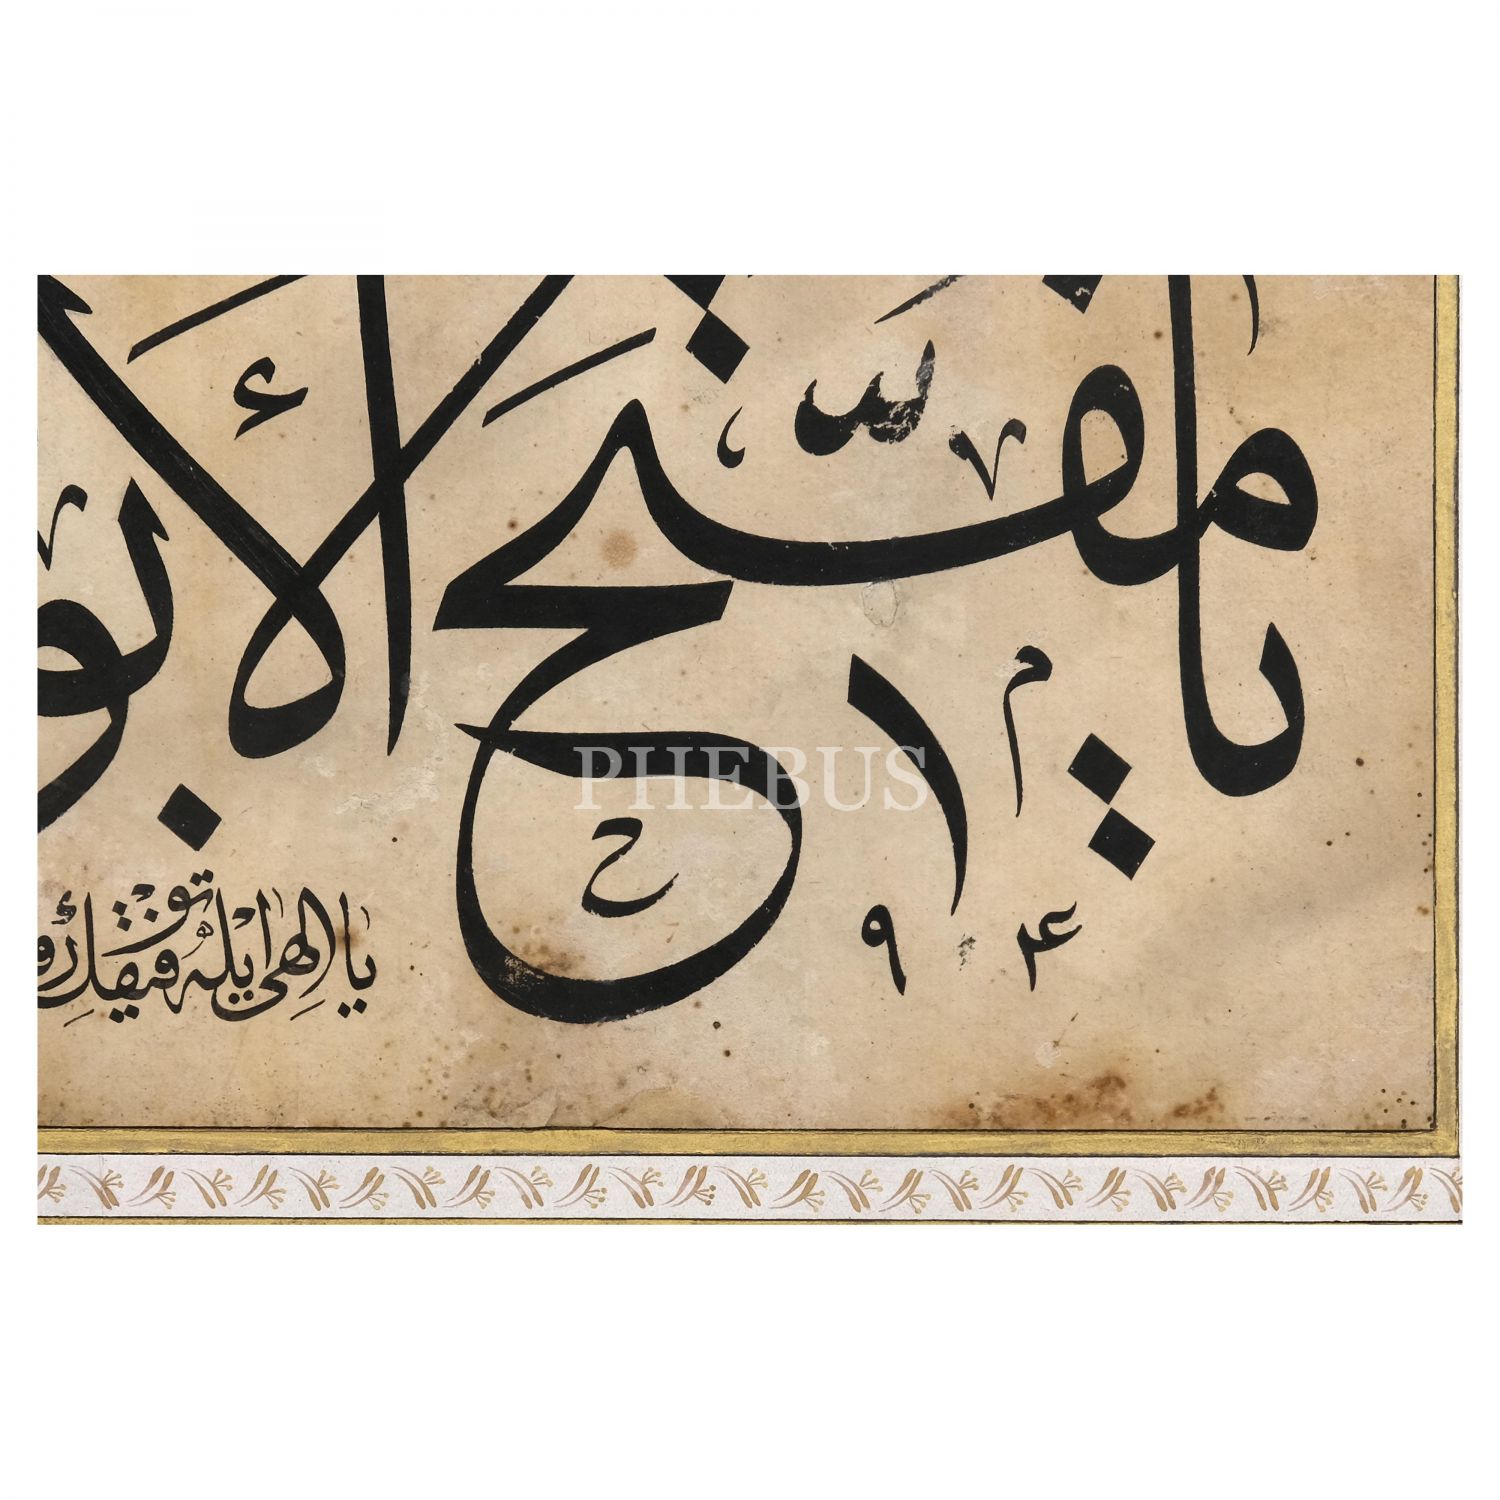 يا مفتح الأبو
يا الهى ايله توفيقك ر
PHEBUS